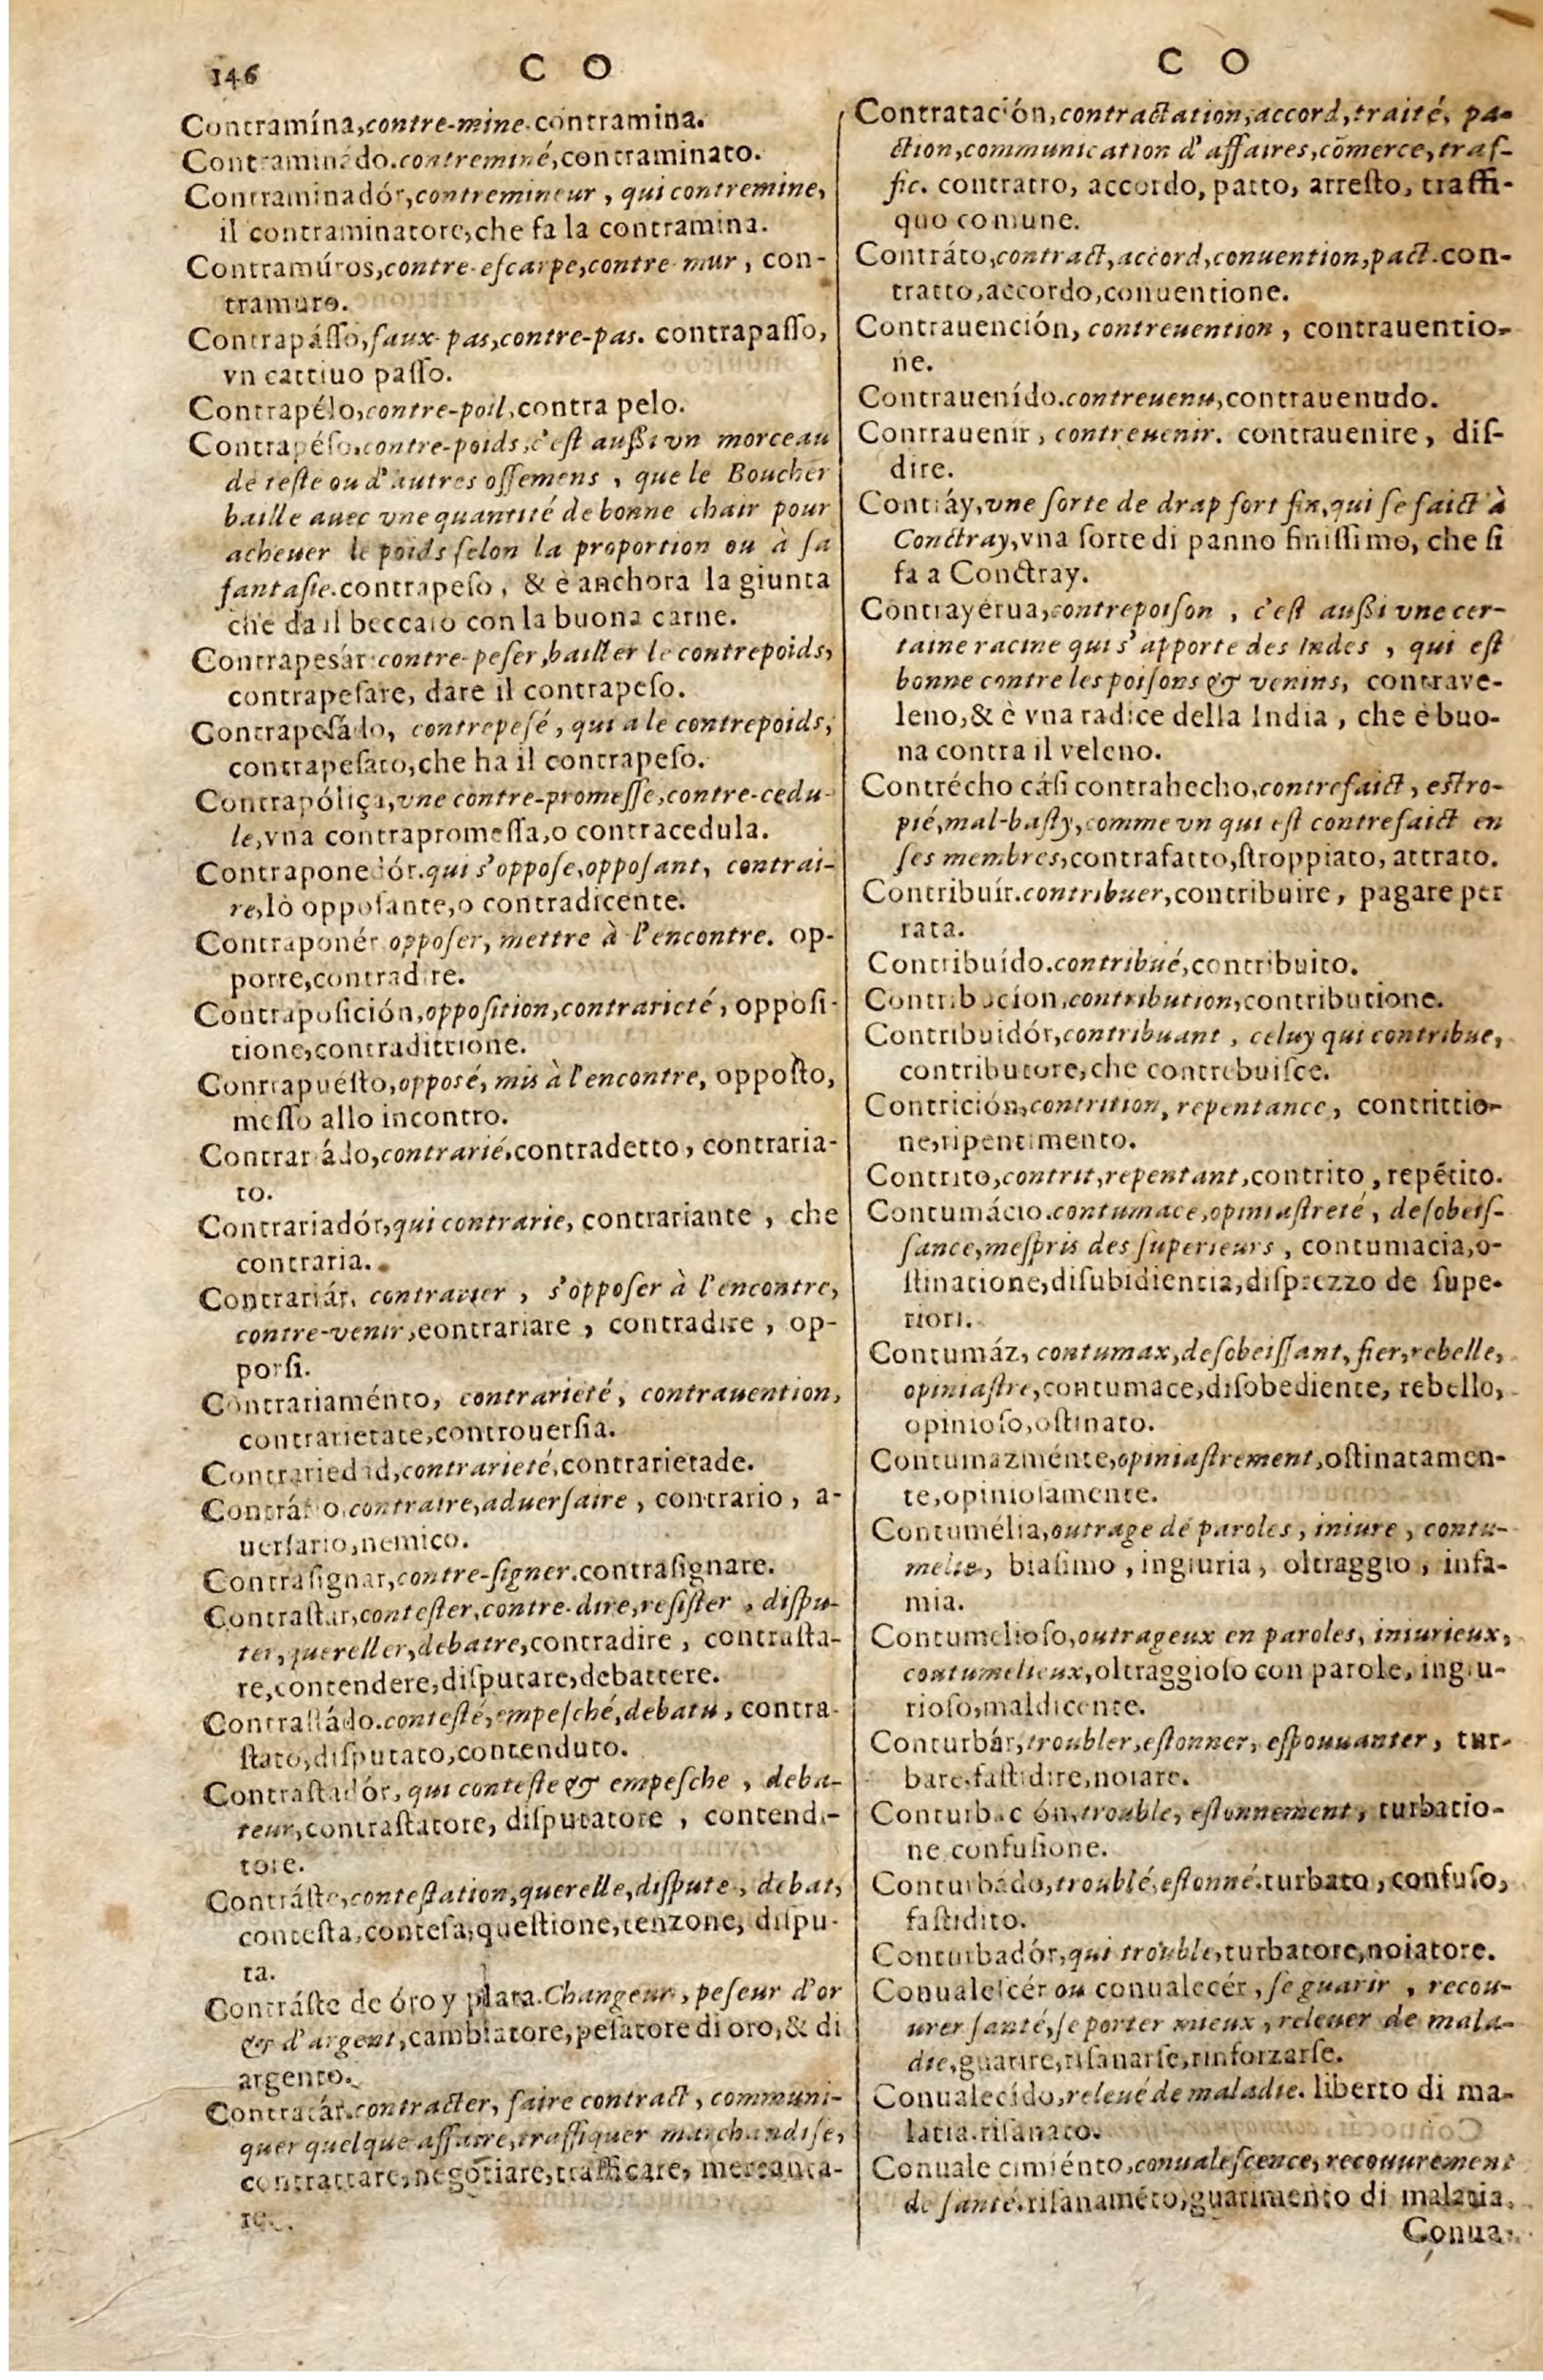 146 C O
Contramína,contre-mine.contramina.
Contraminádo.contreminé,contraminato.
Contraminadór,contremineur, qui contremine,
il contraminatore,che fa la contramina.
Contramúros,contre-eſcarpe,contre-mur, con-
tramuro.
Contrapáſſo,faux-pas,contre-pas. contrapaſſo,
vn cattiuo paſſo.
Contrapélo,contre-poil,contra pelo.
Contrapéſo,contre-poids,c'eſt außi vn morceau
de teſte ou d'autres oſſemens, que le Boucher
baille auec vne quantité de bonne chair pour
acheuer le poids ſelon la proportion ou à ſa
fantaſie.contrapeſo, & è anchora la giunta
che da il beccaio con la buona carne.
Contrapesár contre-peſer,bailler le contrepoids,
contrapeſare, dare il contrapeſo.
Contrapeſádo, contrepeſé, qui a le contrepoids,
contrapeſato,che ha il contrapeſo.
Contrapóliça,vne contre-promeſſe,contre-cedu-
le,vna contrapromeſſa,o contracedula.
Contraponedór.qui s'oppoſe,oppoſant, contrai-
re,lo oppoſante,o contradicente.
Contraponér oppoſer, mettre à l'encontre. op-
porre,contradire.
Contrapoſición,oppoſition,contrarieté, oppoſi-
tione,contradittione.
Contrapuéſto,opposé, mis à l'encontre, oppoſto,
meſſo allo incontro.
Contrariádo,contrarié.contradetto, contraria-
to.
Contrariadór,qui contrarie, contrariante, che
contraria.
Contrariár, contrarier, s'oppoſer à l'encontre,
contre-venir,eontrariare, contradire, op-
porſi.
Contrariaménto, contrarieté, contrauention,
contrarietate,controuerſia.
Contrariedád,contrarieté,contrarietade.
Contrário.contraire,aduerſaire, contrario, a-
uerſario,nemico.
Contraſignar,contre-ſigner.contraſignare.
Contraſtar,conteſter,contre-dire,reſiſter, diſpu-
ter,quereller,debatre,contradire, contraſta-
re,contendere,diſputare,debattere.
Contraſtádo.conteſté,empeſché,debatu, contra-
ſtato,diſputato,contenduto.
Contraſtadór, qui conteſte & empeſche, deba-
teur,contraſtatore, diſputatore, contendi-
tore.
Contráſte,conteſtation,querelle,diſpute, debat,
conteſta,conteſa,queſtione,tenzone, diſpu-
ta.
Contráſte de óro y plata.Changeur, peſeur d'or
& d'argent,cambiatore,peſatore di oro,& di
argento.
Contratár.contracter, faire contract, communi-
quer quelque affaire,traffiquer marchandiſe,
contrattare,negotiare,trafficare, mercanta-
re.
C O
Contratación,contractation,accord,traité, pa-
ction,communication d'affaires,cõmerce,traf-
fic. contratto, accordo, patto, arreſto, traffi-
quo comune.
Contráto,contract,accord,conuention,pact.con-
tratto,accordo,conuentione.
Contrauención, contreuention, contrauentio-
ne.
Contrauenído.contreuenu,contrauenudo.
Contrauenir, contreuenir. contrauenire, diſ-
dire.
Contráy,vne ſorte de drap fort fin,qui ſe faict à
Conctray,vna ſorte di panno finiſſimo, che ſi
fa a Conctray.
Contrayérua,contrepoiſon, c'eſt außi vne cer-
taine racine qui s'apporte des Indes, qui eſt
bonne contre les poiſons & venins, contrave-
leno,& è vna radice della India, che è buo-
na contra il veleno.
Contrécho cáſi contrahecho,contrefaict, eſtro-
pié,mal-baſty,comme vn qui eſt contrefaict en
ſes membres,contrafatto,ſtroppiato, attrato.
Contribuír.contribuer,contribuire, pagare per
rata.
Contribuído.contribué,contribuito.
Contribucíon,contribution,contributione.
Contribuidór,contribuant, celuy qui contribue,
contributore,che contrebuiſce.
Contrición,contrition, repentance, contrittio-
ne,ripentimento.
Contrito,contrit,repentant,contrito, repẽtito.
Contumácio.contumace,opiniaſtreté, deſobeiſ-
ſance,meſpris des ſuperieurs, contumacia,o-
ſtinatione,diſubidientia,diſprezzo de ſupe-
riori.
Contumáz, contumax,deſobeiſſant, fier,rebelle,
opiniaſtre,contumace,diſobediente, rebello,
opinioſo,oſtinato.
Contumazménte,opiniaſtrement,oſtinatamen-
te,opinioſamente.
Contumélia,outrage de paroles, iniure, contu-
melie, biaſimo, ingiuria, oltraggio, infa-
mia.
Contumelioſo,outrageux en paroles, iniurieux,
contumelieux,oltraggioſo con parole, ingiu-
rioſo,maldicente.
Conturbár,troubler,eſtonner, eſpouuanter, tur-
bare,faſtidire,noiare.
Conturbación,trouble, eſtonnement, turbatio-
ne confuſione.
Conturbádo,troublé,eſtonné.turbato, confuſo,
faſtidito.
Conturbadór,qui trouble,turbatore,noiatore.
Conualeſcér ou conualecér, ſe guarir, recou-
urer ſanté,ſe porter mieux, releuer de mala-
die,guarire,riſanarſe,rinforzarſe.
Conualecído,releué de maladie. liberto di ma-
latia.riſanato.
Conualecimiénto,conualeſcence,recouurement
de ſanté.riſanamẽto,guarimento di malatia.
Conua-